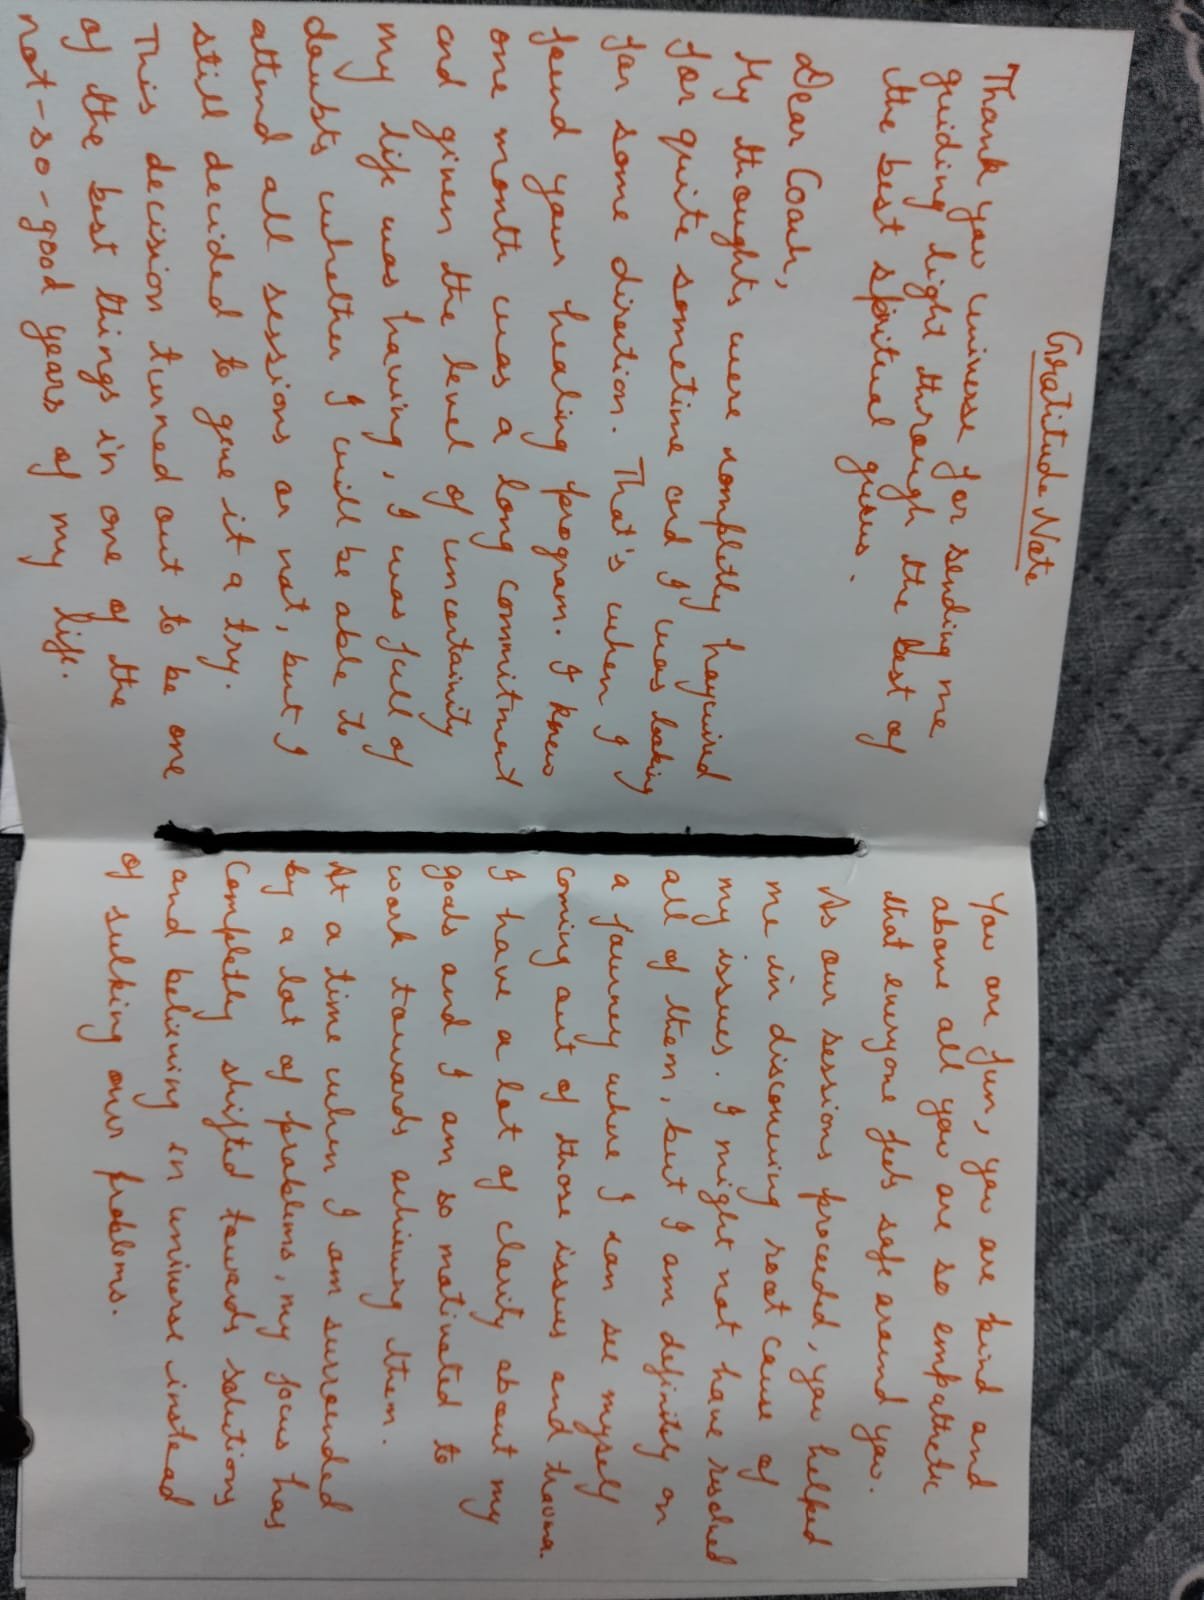 Gratitude Note
Thank you universe for sending me
guiding light through the best of
the best spiritual gurus.
Dear Coach,
My thoughts were completly haycuired
for quite sometime and I was looking
for some direction. That's when I
found your healing program. I knew
one month was a long commitment
and given the level of uncertainity
my life was having, I was full of
doubts whether I will be able to
attend all sessions or not, but I
still decided to give it a try.
This decision turned out to be one
of the best things in one of the
not-so-good years of my life.
You are fun, you are kind and
above all you are so empathetic
that everyone feels safe around you.
As our sessions proceeded, you helped
me in discovering root cause of
my issues. I might not have resolved
all of them, but I am definitely on
a journey where I can see myself
coming out of those issues and trauma.
I have a lot of clarity about my
goals and I am so motivated to
work towards achieving them.
At a time when I am surrounded
by a lot of problems, my focus has
completly shifted towards solutions
and beliving in universe instead
of sulking our problems.